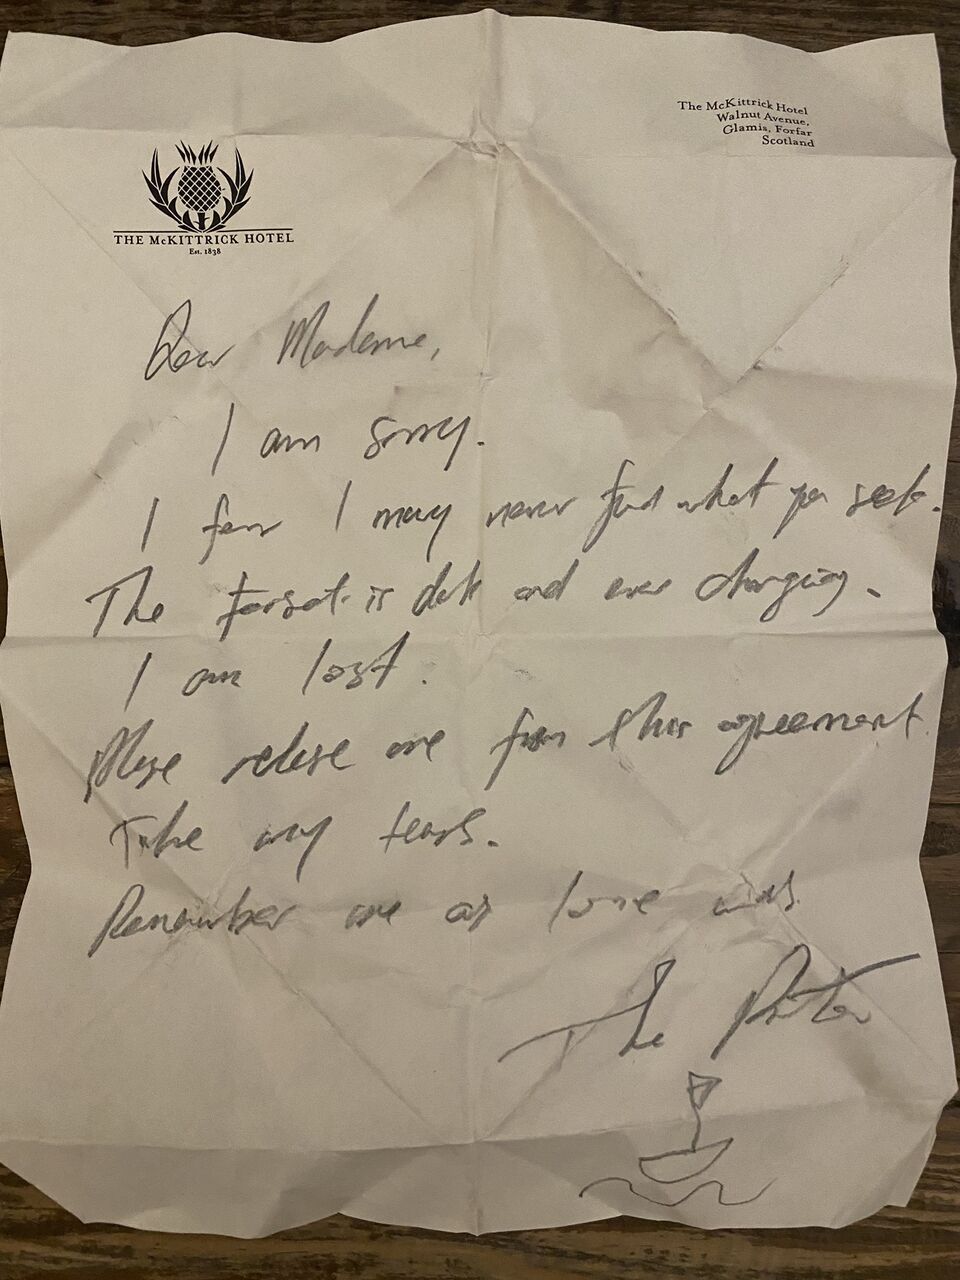 The McKittrick Hotel
Walnut Avenue,
Glamis, Forfar
Scotland
THE McKITTRICK HOTEL
Est. 1838
Dear Madame,
I am sorry.
I fear I may never find what you seek.
The forest is dark and ever changing.
I am lost.
Please release me from this agreement.
Take my tears.
Remember me as love
The Porter